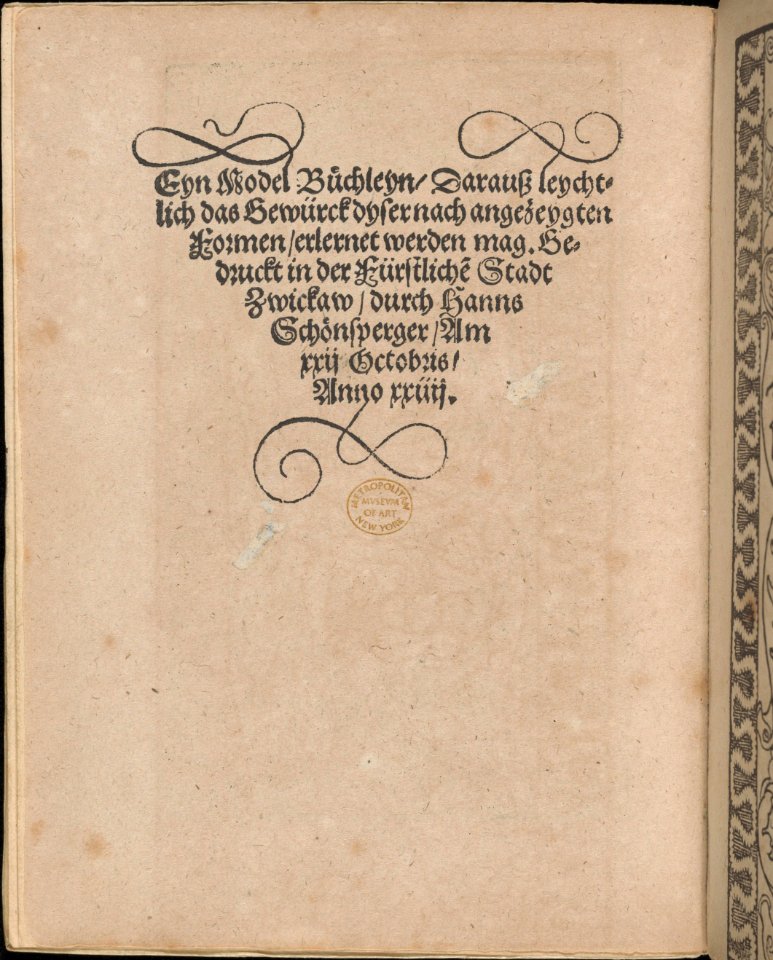 Eyn Model Bůchleyn/ Darauß leycht-
lich das Gewürck dyser nach angezeygten
Formen/erlernet werden mag. Ge-
druckt in der Fürstlichẽ Stadt
Zwickaw/durch Hanns
Schönsperger/Am
xxij Octobris/
Anno xxiiij.
METROPOLITAN
MVSEVM
OF ART
NEW YORK